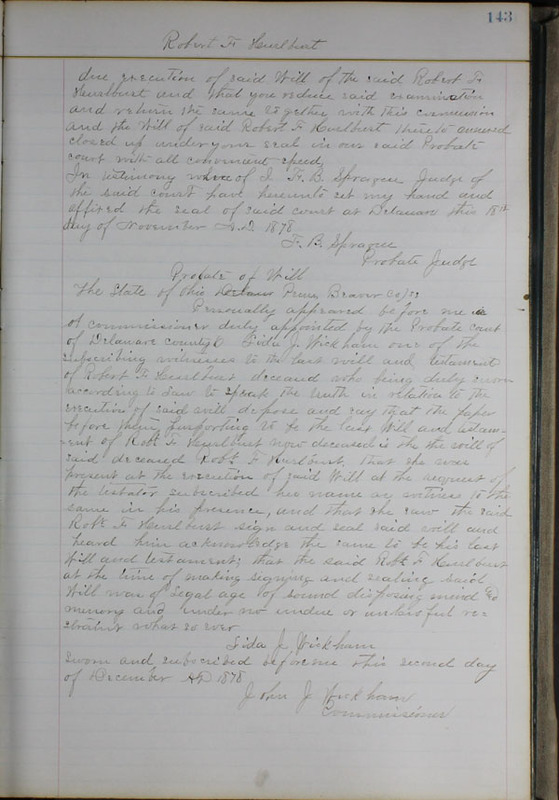 143
Robert F Hurlburt
due execution of said Will of the said Robert F.
Hurlburt and that you reduce said examination
and return the same together with this commission
and the Will of said Robert F Hurlburt thereto annexed
closed up under your seal in our said Probate
court with all convenient speed,
In testimony whereof I F. B. Sprague Judge of
the said court have hereunto set my hand and
affixed the seal of said court at Delaware this 18th
day of November A.D. 1878
F. B. Sprague
Probate Judge
Probate of Will
The State of Ohio Penn, Beaver Co) ss
Personally appeared before me
a commissioner duly appointed by the Probate court
of Delaware county Lida J. Wickham one of the
subscribing witnesses to the last will and testament
of Robert F Hurlburt deceased who being duly sworn
according to Law to speak the truth in relation to the
execution of said will, depose and say that the paper
before them purporting to be the last Will and testam-
ent of Robt F Hurlburt now deceased is the the will of
said deceased Robt F Hurlburt, that she was
present at the execution of said Will at the request of
the testator subscribed her name as witness to the
same in his presence, and that she saw the said
Robt F Hurlburt sign and seal said will and
heard him acknowledge the same to be his last
Will and testament; that the said Robt F Hurlburt
at the time of making signing and sealing said
Will was of legal age of sound disposing mind &
memory and under no undue or unlawful re-
straint what so ever
Lida J Wickham
Sworn and subscribed before me this second day
of December AD 1878
John J Wickham
Commissioner